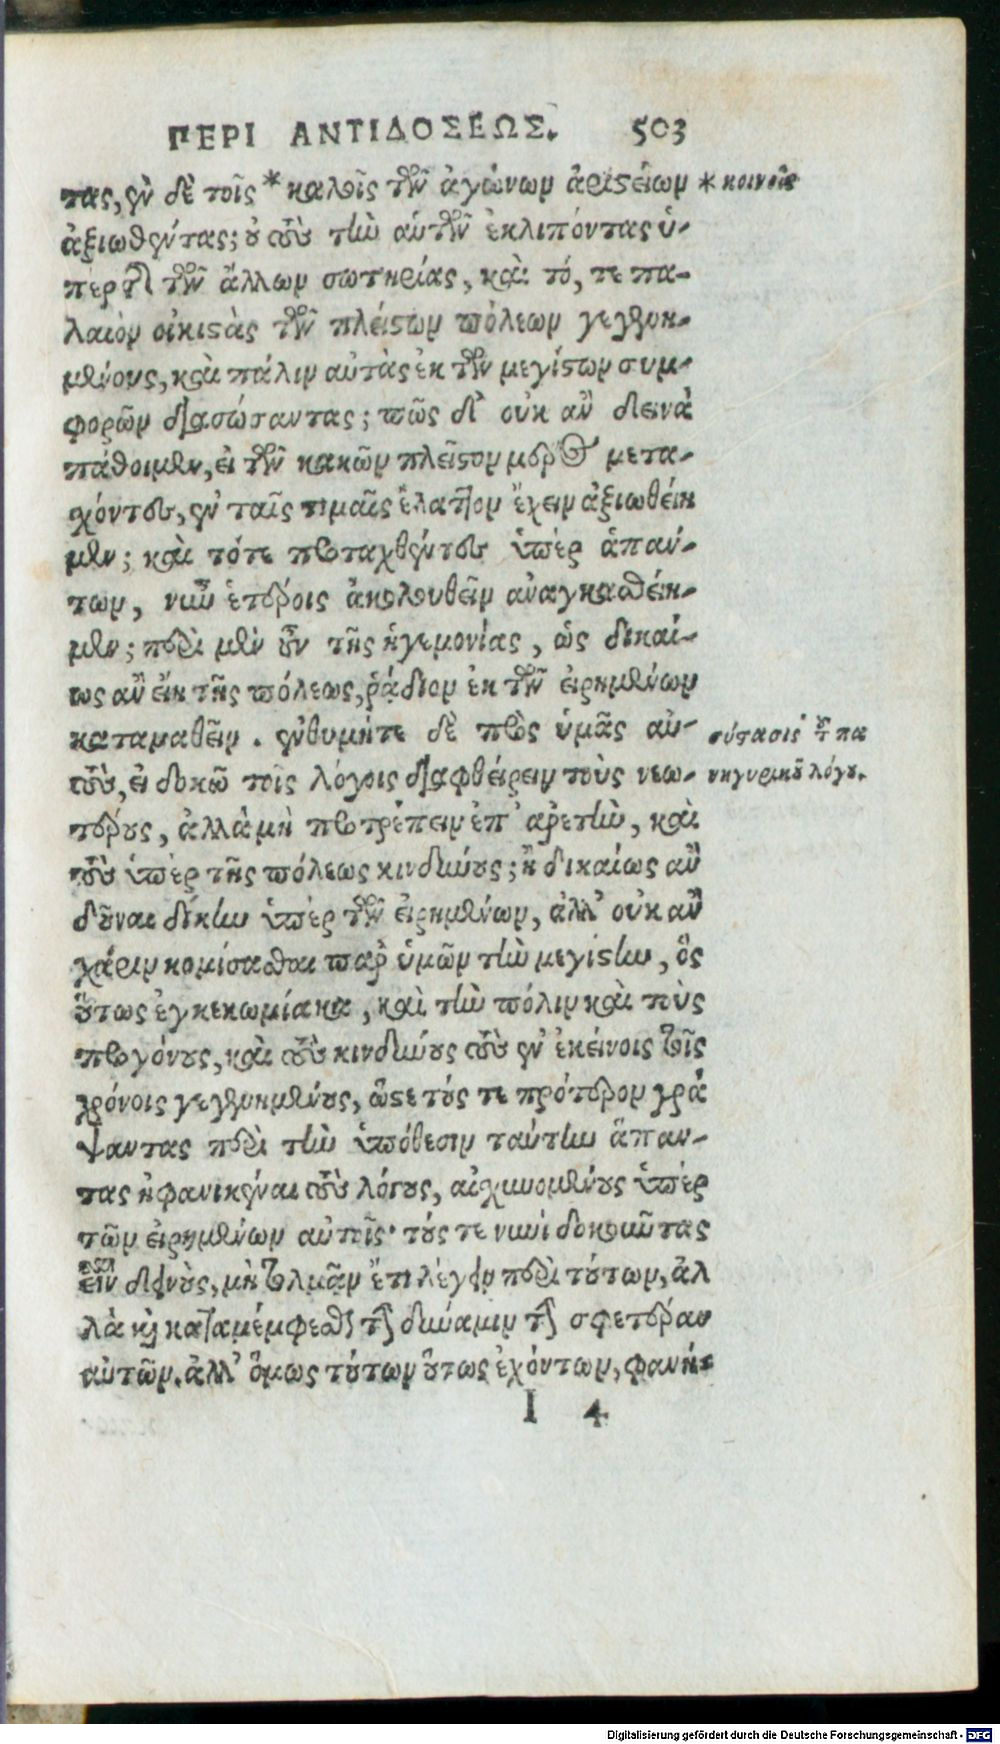 ΠΕΡΙ ΑΝΤΙΔΟΣΕΩΣ. 503
τας, ἐν δὲ τοῖς * καλοῖς τῶν ἀγώνων ἀριστείων * κοινοῖς
ἀξιωθέντας; οὐ τοὺς τὴν αὑτῶν ἐκλιπόντας ὑ-
πὲρ τῆς τῶν ἄλλων σωτηρίας, καὶ τό, τε πα-
λαιὸν οἰκιστὰς τῶν πλείστων πόλεων γεγενη-
μένους, καὶ πάλιν αὐτὰς ἐκ τῶν μεγίστων συμ-
φορῶν διασώσαντας; πῶς δ' οὐκ ἂν δεινὰ
πάθοιμεν, εἰ τῶν κακῶν πλεῖστον μέρος μετα-
χόντες, ἐν ταῖς τιμαῖς ἔλαττον ἔχειν ἀξιωθείη
μεν; καὶ τότε προταχθέντες ὑπὲρ ἁπάν-
των, νῦν ἑτέροις ἀκολουθεῖν ἀναγκασθείη-
μεν; περὶ μὲν οὖν τῆς ἡγεμονίας, ὡς δικαί-
ως ἂν εἴη τῆς πόλεως, ῥάδιον ἐκ τῶν εἰρημένων
καταμαθεῖν. ἐνθυμεῖτε δὲ πρὸς ὑμᾶς αὐ-
τοὺς, εἰ δοκῶ τοῖς λόγοις διαφθείρειν τοὺς νεω-
σύστασις τοῦ πα
νηγυρικοῦ λόγου.
τέρους, ἀλλὰ μὴ προτρέπειν ἐπ' ἀρετὴν, καὶ
τοὺς ὑπὲρ τῆς πόλεως κινδύνους; ἢ δικαίως ἂν
δοῦναι δίκην ὑπὲρ τῶν εἰρημένων, ἀλλ' οὐκ ἂν
χάριν κομίσασθαι παρ' ὑμῶν τὴν μεγίστην, ὃς
οὕτως ἐγκεκωμίακα, καὶ τὴν πόλιν καὶ τοὺς
προγόνους, καὶ τοὺς κινδύνους τοὺς ἐν ἐκείνοις τοῖς
χρόνοις γεγενημένους, ὥστε τούς τε πρότερον γρά
ψαντας περὶ τὴν ὑπόθεσιν ταύτην ἅπαν-
τας ἠφανικέναι τοὺς λόγους, αἰσχυνομένους ὑπὲρ
τῶν εἰρημένων αὐτοῖς· τούς τε νυνὶ δοκοῦντας
εἶναι δεινοὺς, μὴ τολμᾶν ἔτι λέγειν περὶ τούτων, ἀλ
λὰ καὶ καταμέμφεσθαι τὴν δύναμιν τὴν σφετέραν
αὐτῶν. ἀλλ' ὅμως τούτων οὕτως ἐχόντων, φανή-
I 4
Digitalisierung gefördert durch die Deutsche Forschungsgemeinschaft - DFG